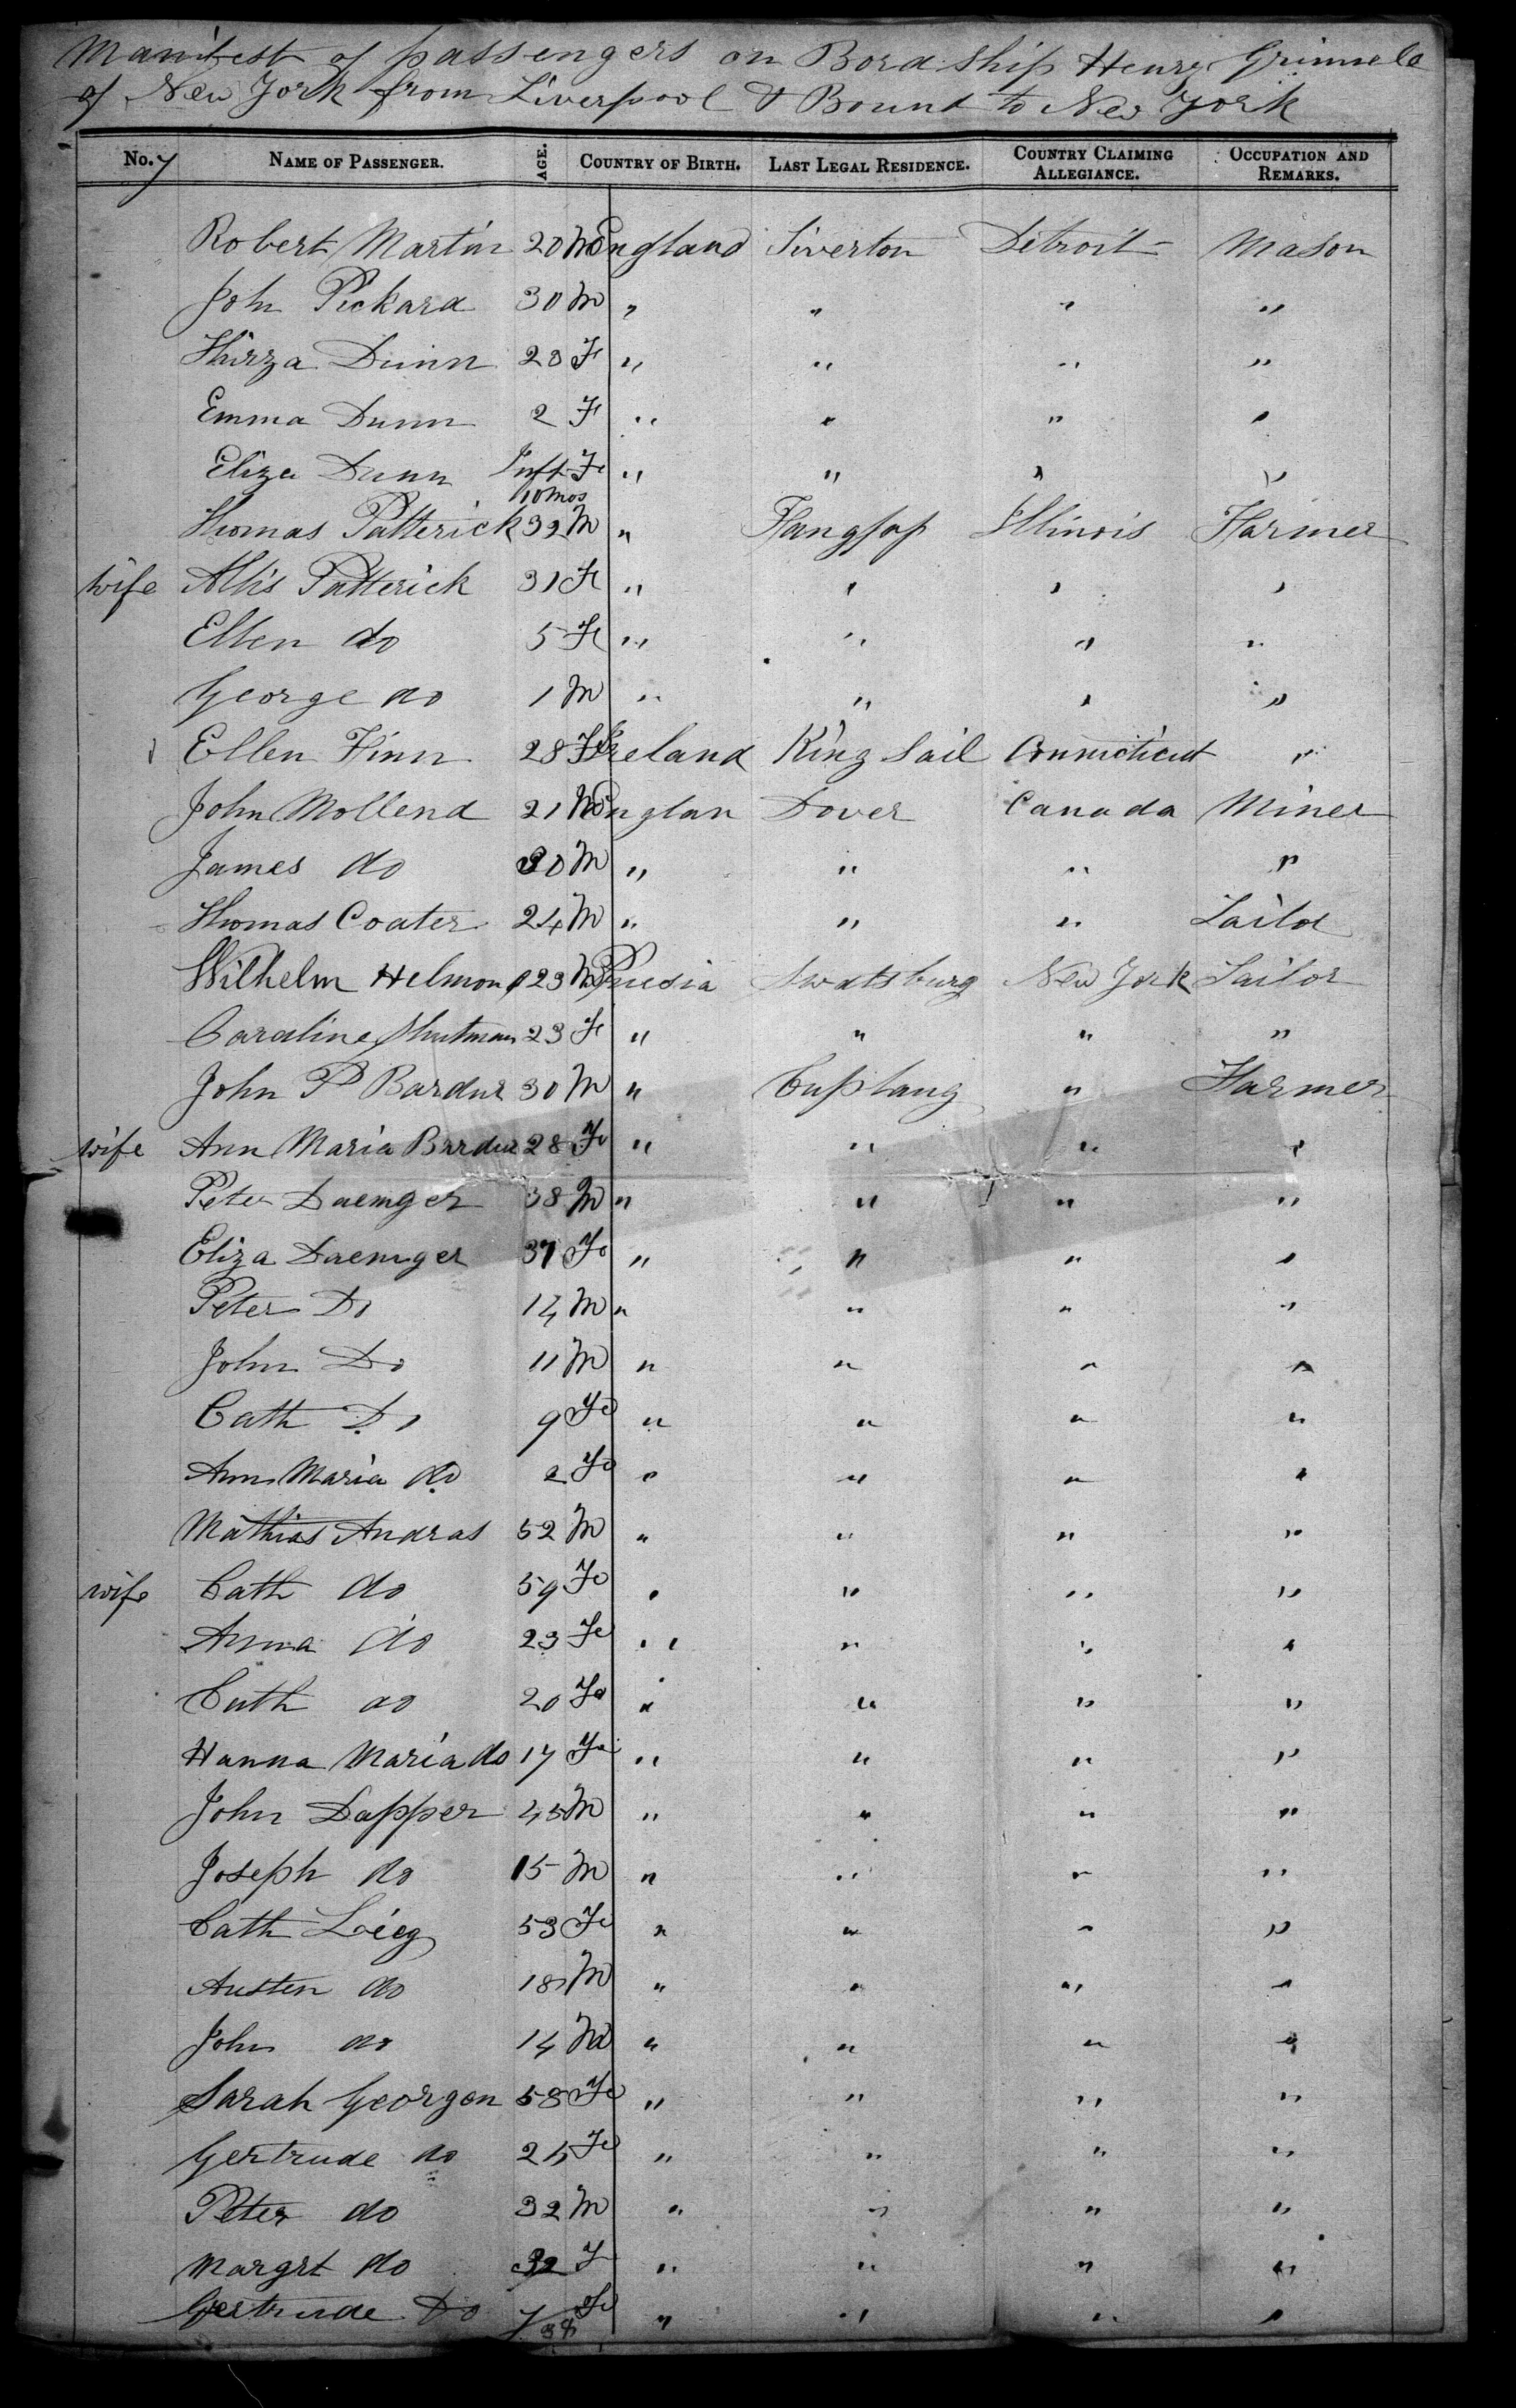 Manifest of passengers on Bord Ship Henry Grinnele
of New York from Liverpool & Bound to New York
No. 7 NAME OF PASSENGER. AGE. COUNTRY OF BIRTH. LAST LEGAL RESIDENCE. COUNTRY CLAIMING ALLEGIANCE. OCCUPATION AND REMARKS.
Robert Martin 20 M England Tiverton Detroit Mason
John Pickard 30 M " " " "
Thirza Dunn 28 F " " " "
Emma Dunn 2 F " " " "
Eliza Dunn Inft Fe " " " "
10 mos
Thomas Patterick 32 M " Illinois Farmer
wife Allis Patterick 31 Fe " " " "
Ellen do 5 Fe " " " "
George do 1 M " " " "
Ellen Finn 28 Fe Ireland King Sail Connicticut "
John Mollend 21 M Englan Dover Canada Miner
James do 30 M " " " "
Thomas Coater 24 M " " " Tailor
Wilhelm Helmon 23 M Prusia Swatsburg New York Tailor
Caroline 23 Fe " " " "
John P Bardur 30 M " " Farmer
wife Ann Maria Bardur 28 Fe " " " "
Peter Daemger 38 M " " " "
Eliza Daemger 37 Fe " " " "
Peter Do 14 M " " " "
John Do 11 M " " " "
Cath Do 9 Fe " " " "
Ann Maria do 2 Fe " " " "
Mathias Andras 52 M " " " "
wife Cath do 59 Fe " " " "
Anna do 23 Fe " " " "
Cath do 20 Fe " " " "
Hanna Maria do 17 Fe " " " "
John Dapper 45 M " " " "
Joseph do 15 M " " " "
Cath 53 Fe " " " "
Austen do 18 M " " " "
John do 14 M " " " "
Sarah Georgen 58 Fe " " " "
Gertrude do 25 Fe " " " "
Peter do 32 M " " " "
Margrt do 32 F " " " "
Gertrude Do Fe " " " "